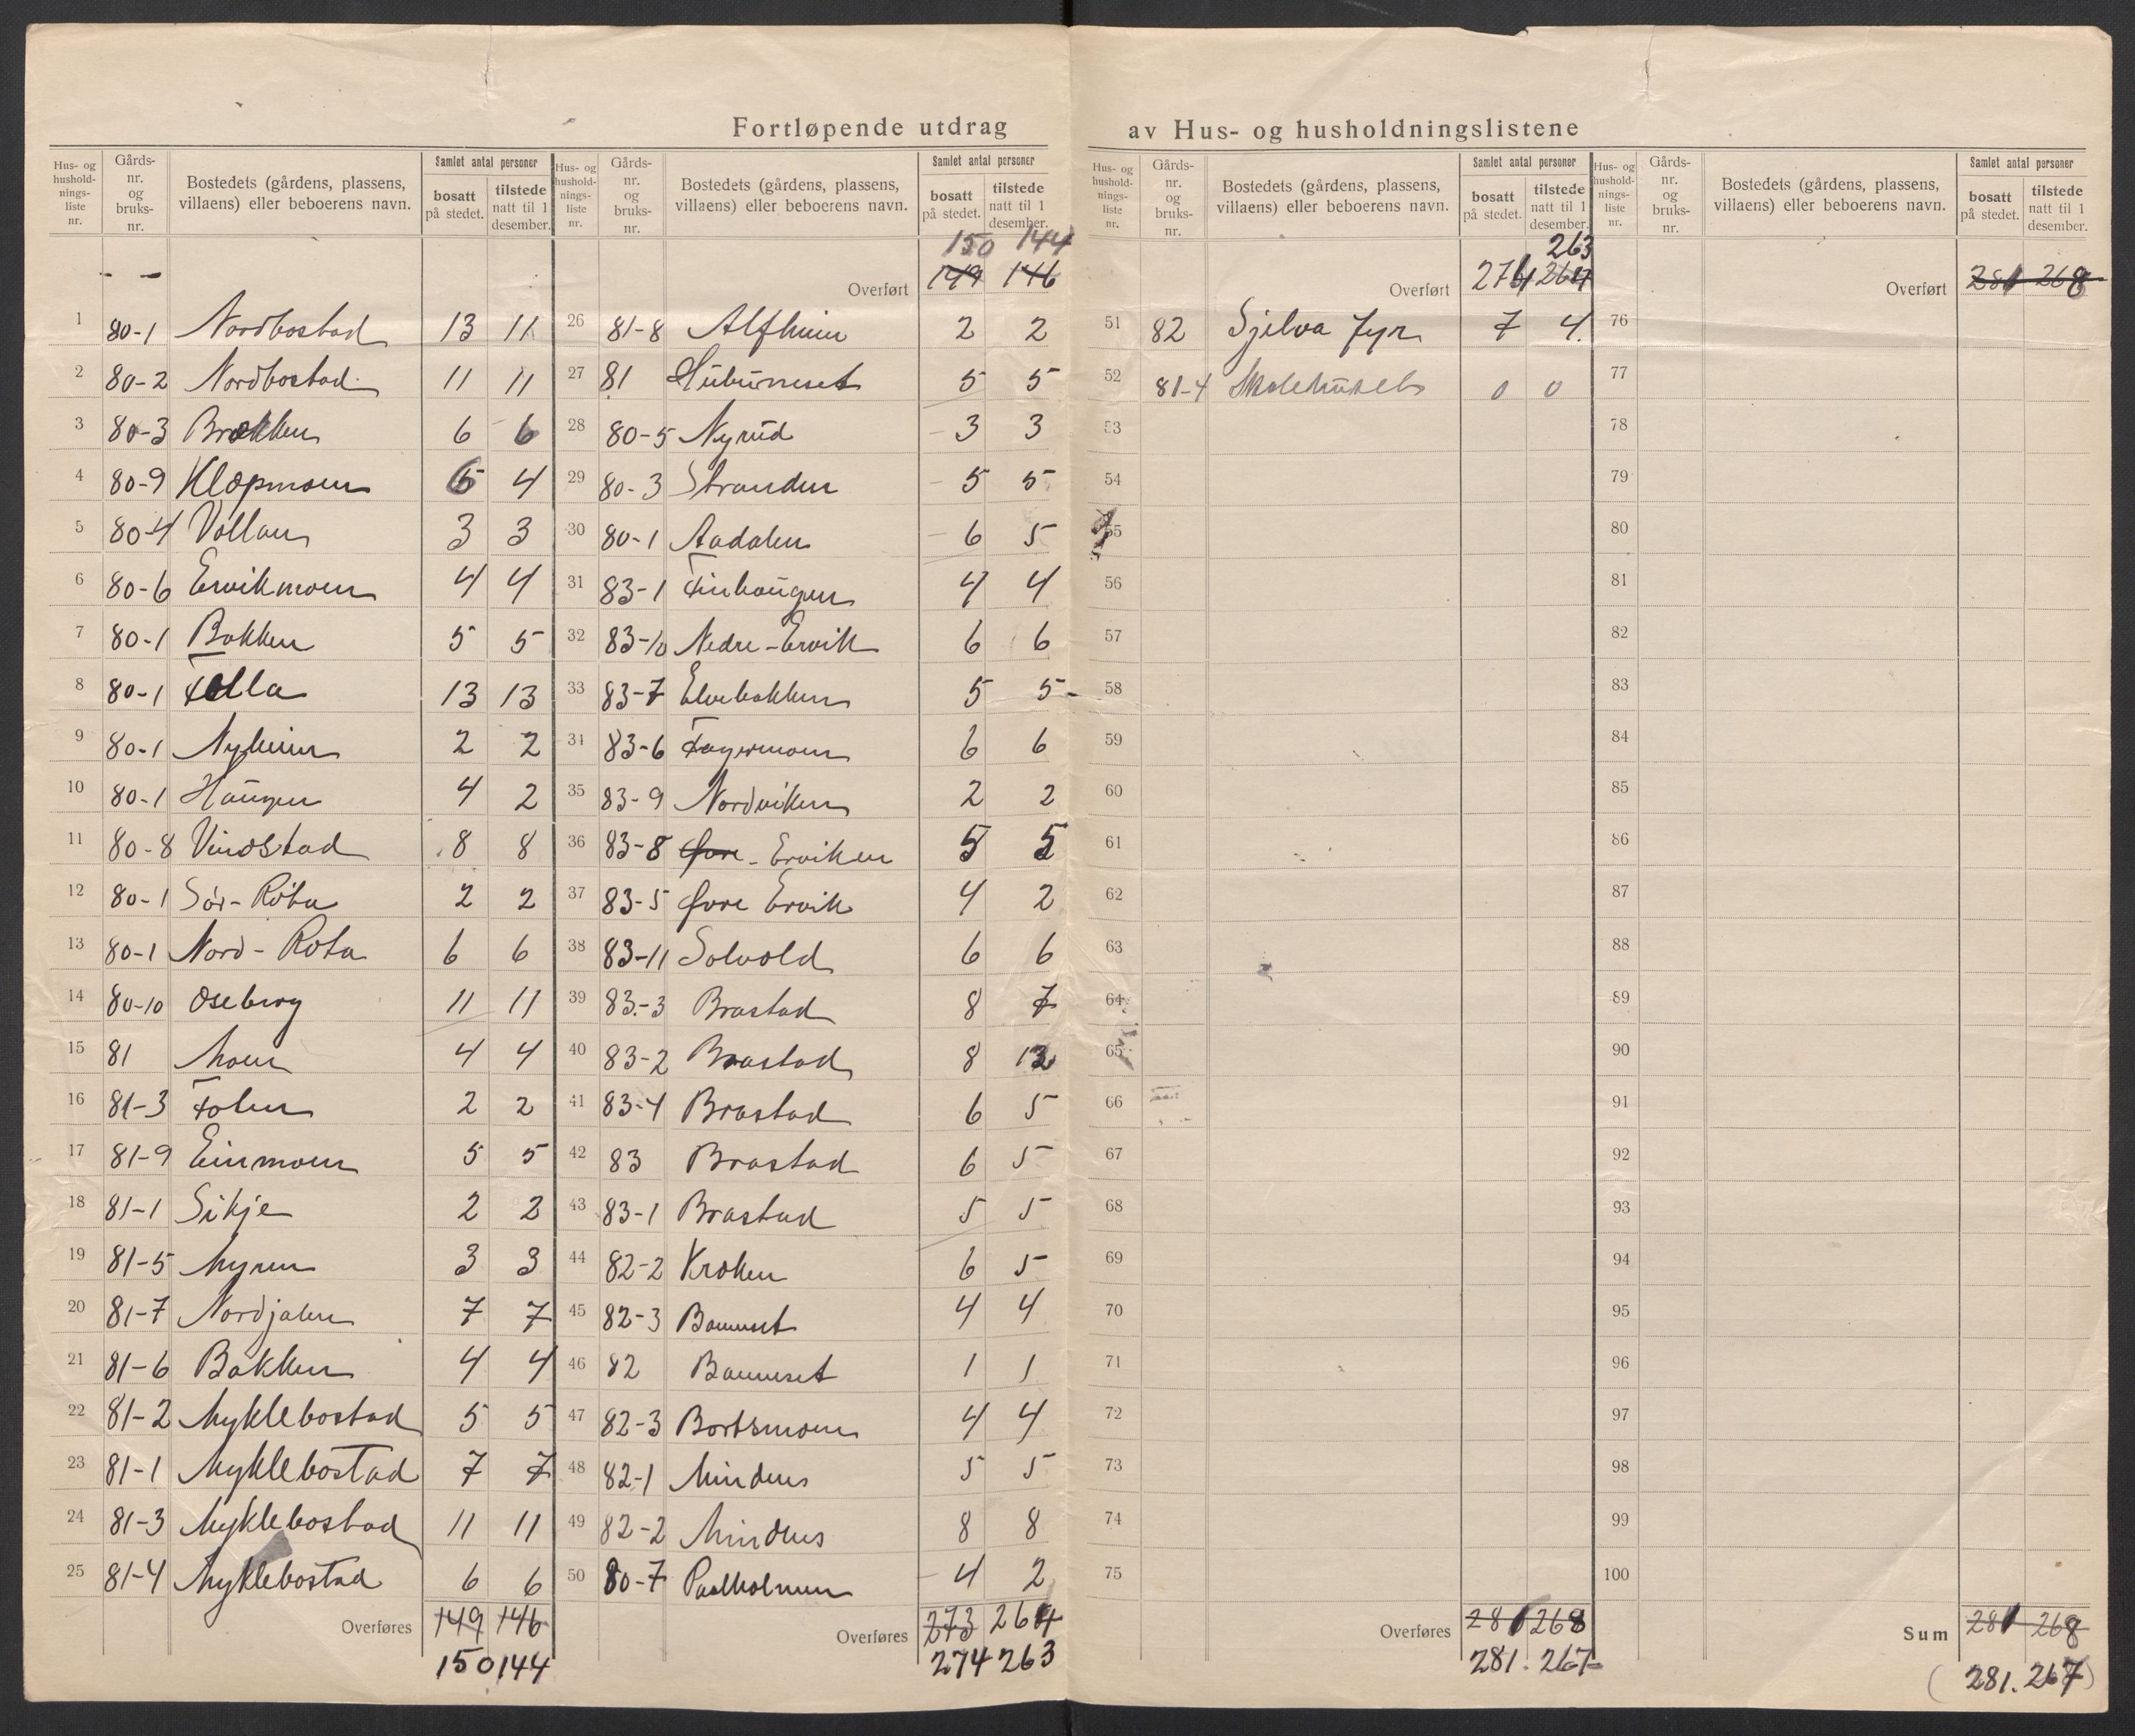 Fortløpende utdrag av Hus- og husholdningslistene
Hus- og husholdningsliste nr. Gårds- nr. og bruks- nr. Bostedets (gårdens, plassens, villaens) eller beboerens navn. Samlet antal personer bosatt på stedet. tilstede natt til 1 desember.
1 80-1 Nordbostad 13 11
2 80-2 Nordbostad 11 11
3 80-3 Brækken 6 6
4 80-9 Klopmoen 6 4
5 80-4 Vollan 3 3
6 80-6 Ervikmoen 4 4
7 80-1 Bakken 5 5
8 80-1 Følla 13 13
9 80-1 Nyheim 2 2
10 80-1 Haugen 4 2
11 80-8 Vinostad 8 8
12 80-1 Sör-Röta 2 2
13 80-1 Nord-Rota 6 6
14 80-10 Oseberg 11 11
15 81 Moen 4 4
16 81-3 2 2
17 81-9 Einmoen 5 5
18 81-1 Sitje 2 2
19 81-5 Myren 3 3
20 81-7 Nordjalen 7 7
21 81-6 Bakken 4 4
22 81-2 Myklebostad 5 5
23 81-1 Myklebostad 7 7
24 81-3 Myklebostad 11 11
25 81-4 Myklebostad 6 6
Overføres 149 146
150 144
Hus- og husholdningsliste nr. Gårds- nr. og bruks- nr. Bostedets (gårdens, plassens, villaens) eller beboerens navn. Samlet antal personer bosatt på stedet. tilstede natt til 1 desember.
150 144
Overført 149 146
26 81-8 Alfheim 2 2
27 81 5 5
28 80-5 Nyrud 3 3
29 80-3 Stranden 5 5
30 80-1 Aadalen 6 5
31 83-1 Finhaugen 4 4
32 83-10 Nedre-Ervik 6 6
33 83-7 Elvebakken 5 5
34 83-6 Fagermoen 6 6
35 83-9 Nordviken 2 2
36 83-8 Øvre-Erviken 5 5
37 83-5 Øvre Ervik 4 2
38 83-11 Solvold 6 6
39 83-3 Brastad 8 7
40 83-2 Brastad 8 12
41 83-4 Brastad 6 5
42 83 Brastad 6 5
43 83-1 Brastad 5 5
44 82-2 Kroken 6 5
45 82-3 Bonneset 4 4
46 82 Bonneset 1 1
47 82-3 Bortsmoen 4 4
48 82-1 Mindnes 5 5
49 82-2 Mindnes 8 8
50 80-7 Paalholmen 4 2
Overføres 273 264
274 263
Hus- og husholdningsliste nr. Gårds- nr. og bruks- nr. Bostedets (gårdens, plassens, villaens) eller beboerens navn. Samlet antal personer bosatt på stedet. tilstede natt til 1 desember.
263
Overført 274 264
51 82 Sjelva fyr 7 4
52 81-4 Skolehuset 0 0
53
54
55
56
57
58
59
60
61
62
63
64
65
66
67
68
69
70
71
72
73
74
75
Overføres 281 268
281. 267
Hus- og husholdningsliste nr. Gårds- nr. og bruks- nr. Bostedets (gårdens, plassens, villaens) eller beboerens navn. Samlet antal personer bosatt på stedet. tilstede natt til 1 desember.
Overført 281 268
76
77
78
79
80
81
82
83
84
85
86
87
88
89
90
91
92
93
94
95
96
97
98
99
100
Sum 281 268
(281. 267)